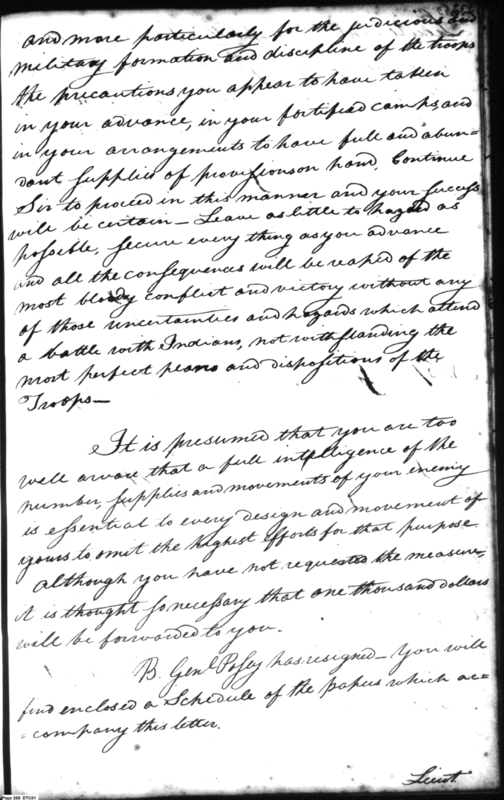 and more particularly for the judicious and
military formation and discipline of the troops
the precautions you appear to have taken
in your advance, in your fortified camps, and
in your arrangements to have full and abun=
dant supplies of provisions on hand. Continue
Sir to proceed in this manner and your success
will be certain — Leave as little to hazard as
possible, secure every thing as you advance
and all the consequences will be reaped of the
most bloody conflict and victory without any
of those uncertainties and hazards which attend
a battle with Indians, notwithstanding the
most perfect plans and dispositions of the
Troops —
It is presumed that you are too
well aware that a full intelligence of the
number, supplies and movements of your enemy
is essential to every design and movement of
yours to omit the highest efforts for that purpose
although you have not requested the measure,
it is thought so necessary that one thousand dollars
will be forwarded to you.
B. Genl. Posey has resigned — You will
find enclosed a Schedule of the papers which ac=
=company this letter.
Lieut.
Page 266 DTC01